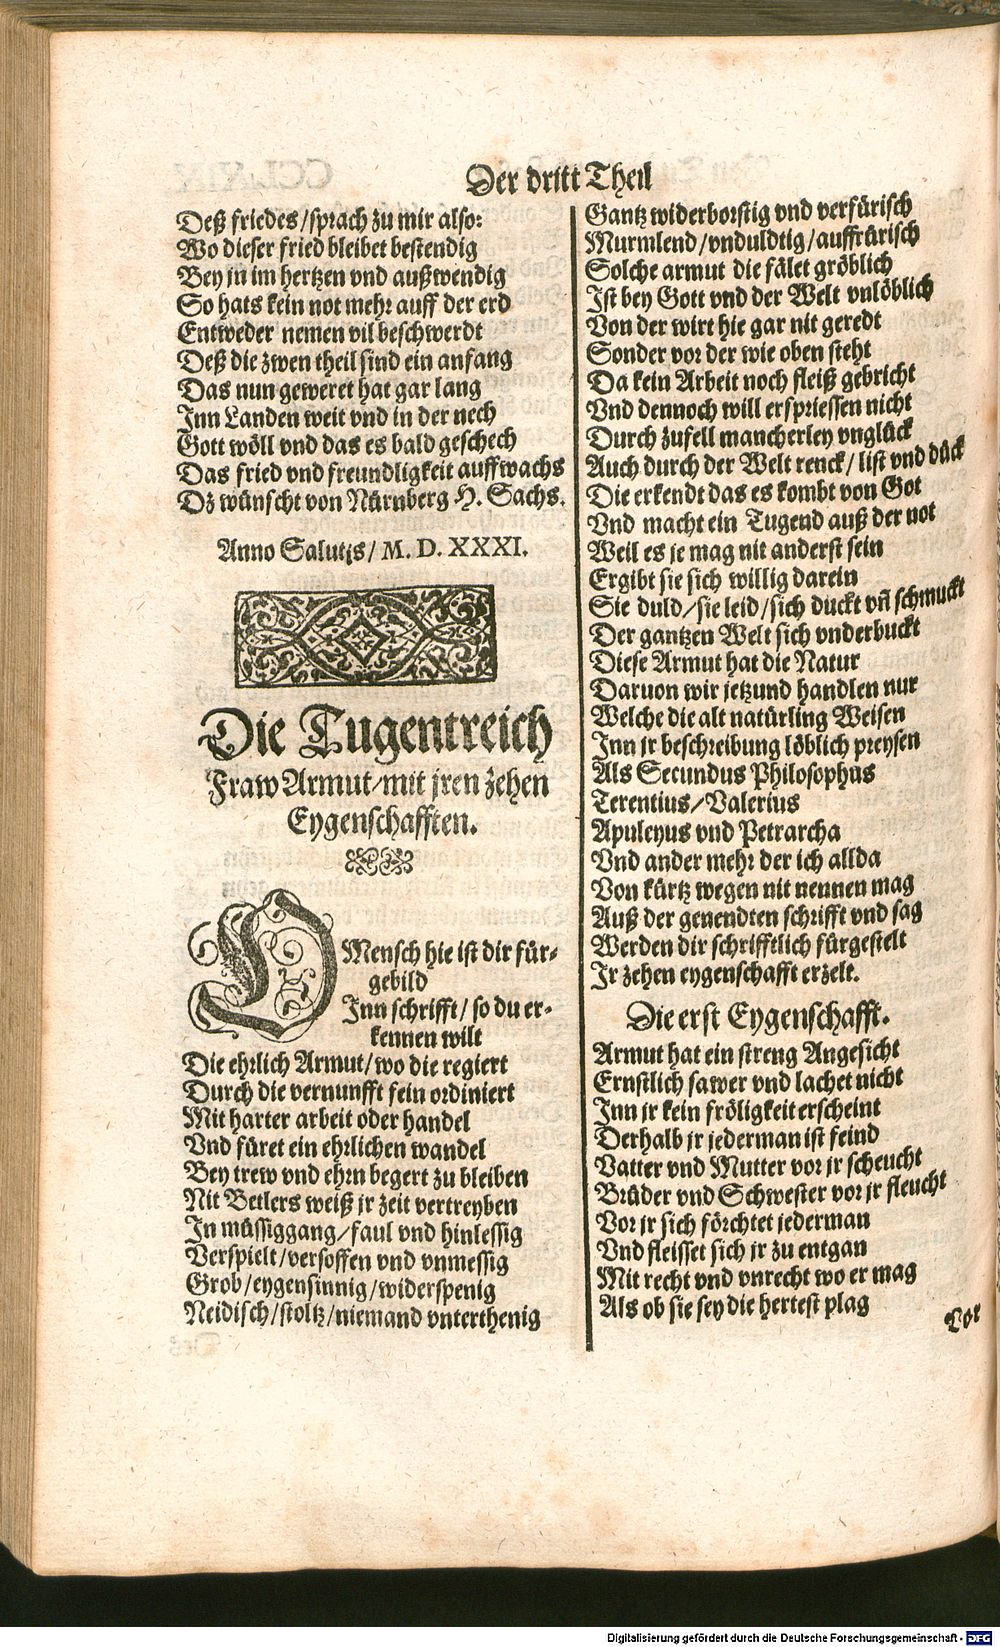 Der dritt Theil
Deß friedes/sprach zu mir also:
Wo dieser fried bleibet bestendig
Bey jn im hertzen vnd außwendig
So hats kein not mehr auff der erd
Entweder nemen vil beschwerdt
Deß die zwen theil sind ein anfang
Das nun geweret hat gar lang
Inn Landen weit vnd in der nech
Gott wöll vnd das es bald geschech
Das fried vnd freundligkeit auffwachs
Dz wünscht von Nürnberg H. Sachs.
Anno Salutis/ M. D. XXXI.
Die Tugentreich
Fraw Armut/mit jren zehen
Eygenschafften.
O Mensch hie ist dir für-
gebild
Inn schrifft/ so du er-
kennen wilt
Die ehrlich Armut/wo die regiert
Durch die vernunfft fein ordiniert
Mit harter arbeit oder handel
Vnd füret ein ehrlichen wandel
Bey trew vnd ehrn begert zu bleiben
Nit Betlers weiß jr zeit vertreyben
In müssiggang/faul vnd hinlessig
Verspielt/versoffen vnd vnmessig
Grob/eygensinnig/widerspenig
Neidisch/stoltz/niemand vnterthenig
Gantz widerborstig vnd verfürisch
Murmlend/vnduldtig/auffrürisch
Solche armut die fälet gröblich
Ist bey Gott vnd der Welt vnlöblich
Von der wirt hie gar nit geredt
Sonder vor der wie oben steht
Da kein Arbeit noch fleiß gebricht
Vnd dennoch will erspriessen nicht
Durch zufell mancherley vnglück
Auch durch der Welt renck/ list vnd dück
Die erkendt das es kombt von Got
Vnd macht ein Tugend auß der not
Weil es je mag nit anderst sein
Ergibt sie sich willig darein
Sie duld/sie leid/sich duckt vñ schmuckt
Der gantzen Welt sich vnderbuckt
Diese Armut hat die Natur
Daruon wir jetzund handlen nur
Welche die alt natürling Weisen
Inn jr beschreibung löblich preysen
Als Secundus Philosophus
Terentius/Valerius
Apuleyus vnd Petrarcha
Vnd ander mehr der ich allda
Von kürtz wegen nit nennen mag
Auß der genendten schrifft vnd sag
Werden dir schrifftlich fürgestelt
Ir zehen eygenschafft erzelt.
Die erst Eygenschafft.
Armut hat ein streng Angesicht
Ernstlich sawer vnd lachet nicht
Inn jr kein fröligkeit erscheint
Derhalb jr jederman ist feind
Vatter vnd Mutter vor jr scheucht
Brüder vnd Schwester vor jr fleucht
Vor jr sich förchtet jederman
Vnd fleisset sich jr zu entgan
Mit recht vnd vnrecht wo er mag
Als ob sie sey die hertest plag
Digitalisierung gefördert durch die Deutsche Forschungsgemeinschaft - DFG